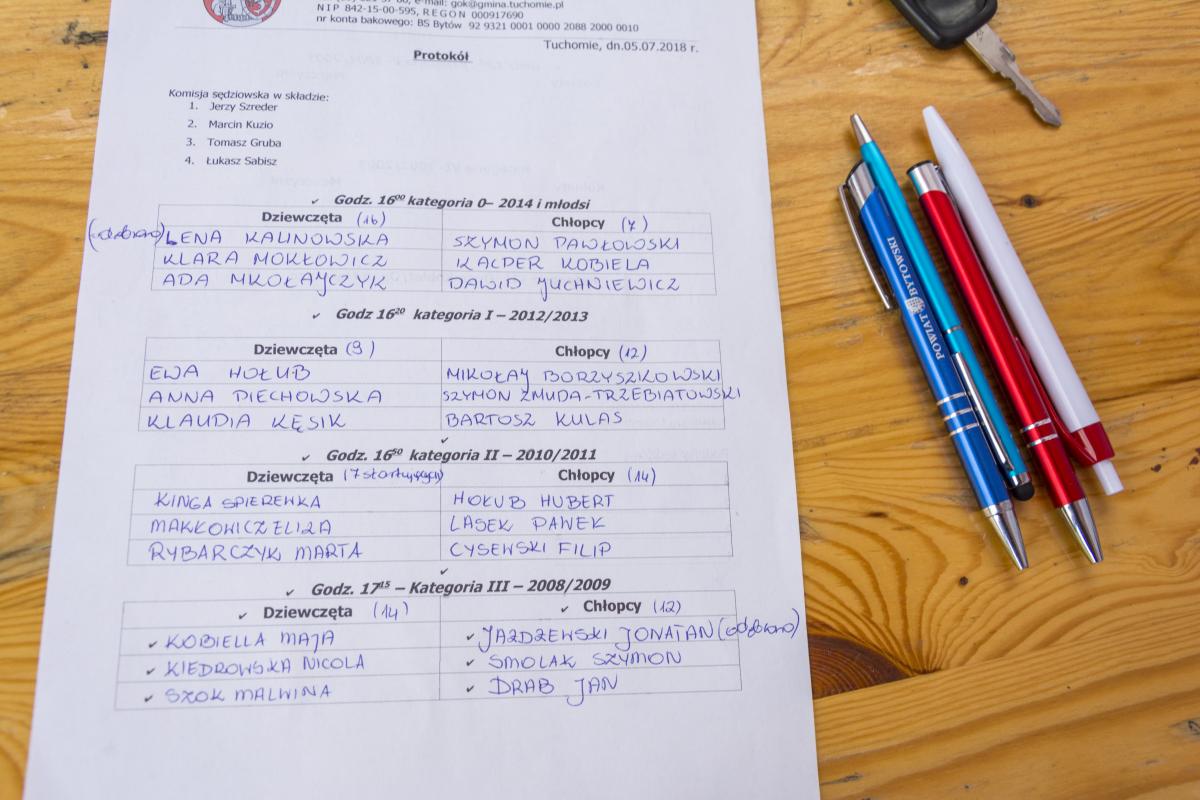 e-mail: gok@gmina.tuchomie.pl
NIP 842-15-00-595, REGON 000917690
nr konta bakowego: BS Bytów 92 9321 0001 0000 2088 2000 0010
Tuchomie, dn.05.07.2018 r.
Protokół
Komisja sędziowska w składzie:
1. Jerzy Szreder
2. Marcin Kuzio
3. Tomasz Gruba
4. Łukasz Sabisz
✓ Godz. 16⁰⁰ kategoria 0– 2014 i młodsi
Dziewczęta (16) Chłopcy (7)
(odebrano) LENA KALINOWSKA SZYMON PAWŁOWSKI
KLARA MOKŁOWICZ KACPER KOBIELA
ADA MKOŁAJCZYK DAWID JUCHNIEWICZ
✓ Godz 16²⁰ kategoria I – 2012/2013
Dziewczęta (9) Chłopcy (12)
EWA HOŁUB MIKOŁAJ BORZYSZKOWSKI
ANNA PIECHOWSKA SZYMON ŻMUDA-TRZEBIATOWSKI
KLAUDIA KĘSIK BARTOSZ KULAS
✓
✓ Godz. 16⁵⁰ kategoria II – 2010/2011
Dziewczęta (7 startujących) Chłopcy (14)
KINGA SPIEREWKA HOŁUB HUBERT
MAKKOWICZ ELIZA LASEK PAWEŁ
RYBARCZYK MARTA CYSEWSKI FILIP
✓
✓ Godz. 17¹⁵ – Kategoria III – 2008/2009
✓ Dziewczęta (14) ✓ Chłopcy (12)
✓ KOBIELLA MAJA ✓ JAŻDŻEWSKI JONATAN (odebrano)
✓ KIEDROWSKA NICOLA ✓ SMOLAK SZYMON
✓ SZOK MALWINA ✓ DRAB JAN
POWIAT BYTOWSKI